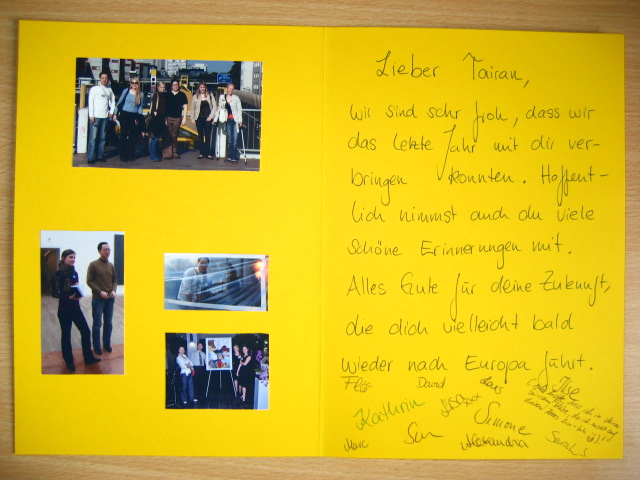 Lieber Tairan,
wir sind sehr froh, dass wir
das letzte Jahr mit dir ver-
bringen konnten. Hoffent-
lich nimmst auch du viele
schöne Erinnerungen mit.
Alles Gute für deine Zukunft,
die dich vielleicht bald
wieder nach Europa führt.
David Lars Ilse
Kathrin LISA Simone
Marc Alexandra Sarah S